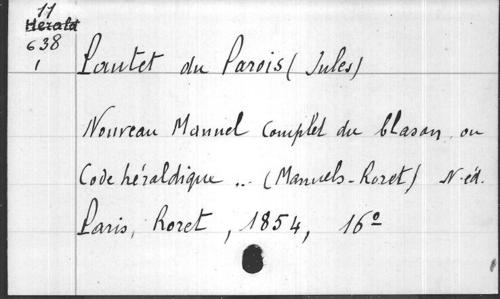 11
Herald
638
1
Pautet du Parois (Jules)
Nouveau Manuel complet du blason ou
Code héraldique ... (Manuels-Roret) N. éd.
Paris, Roret, 1854, 16º